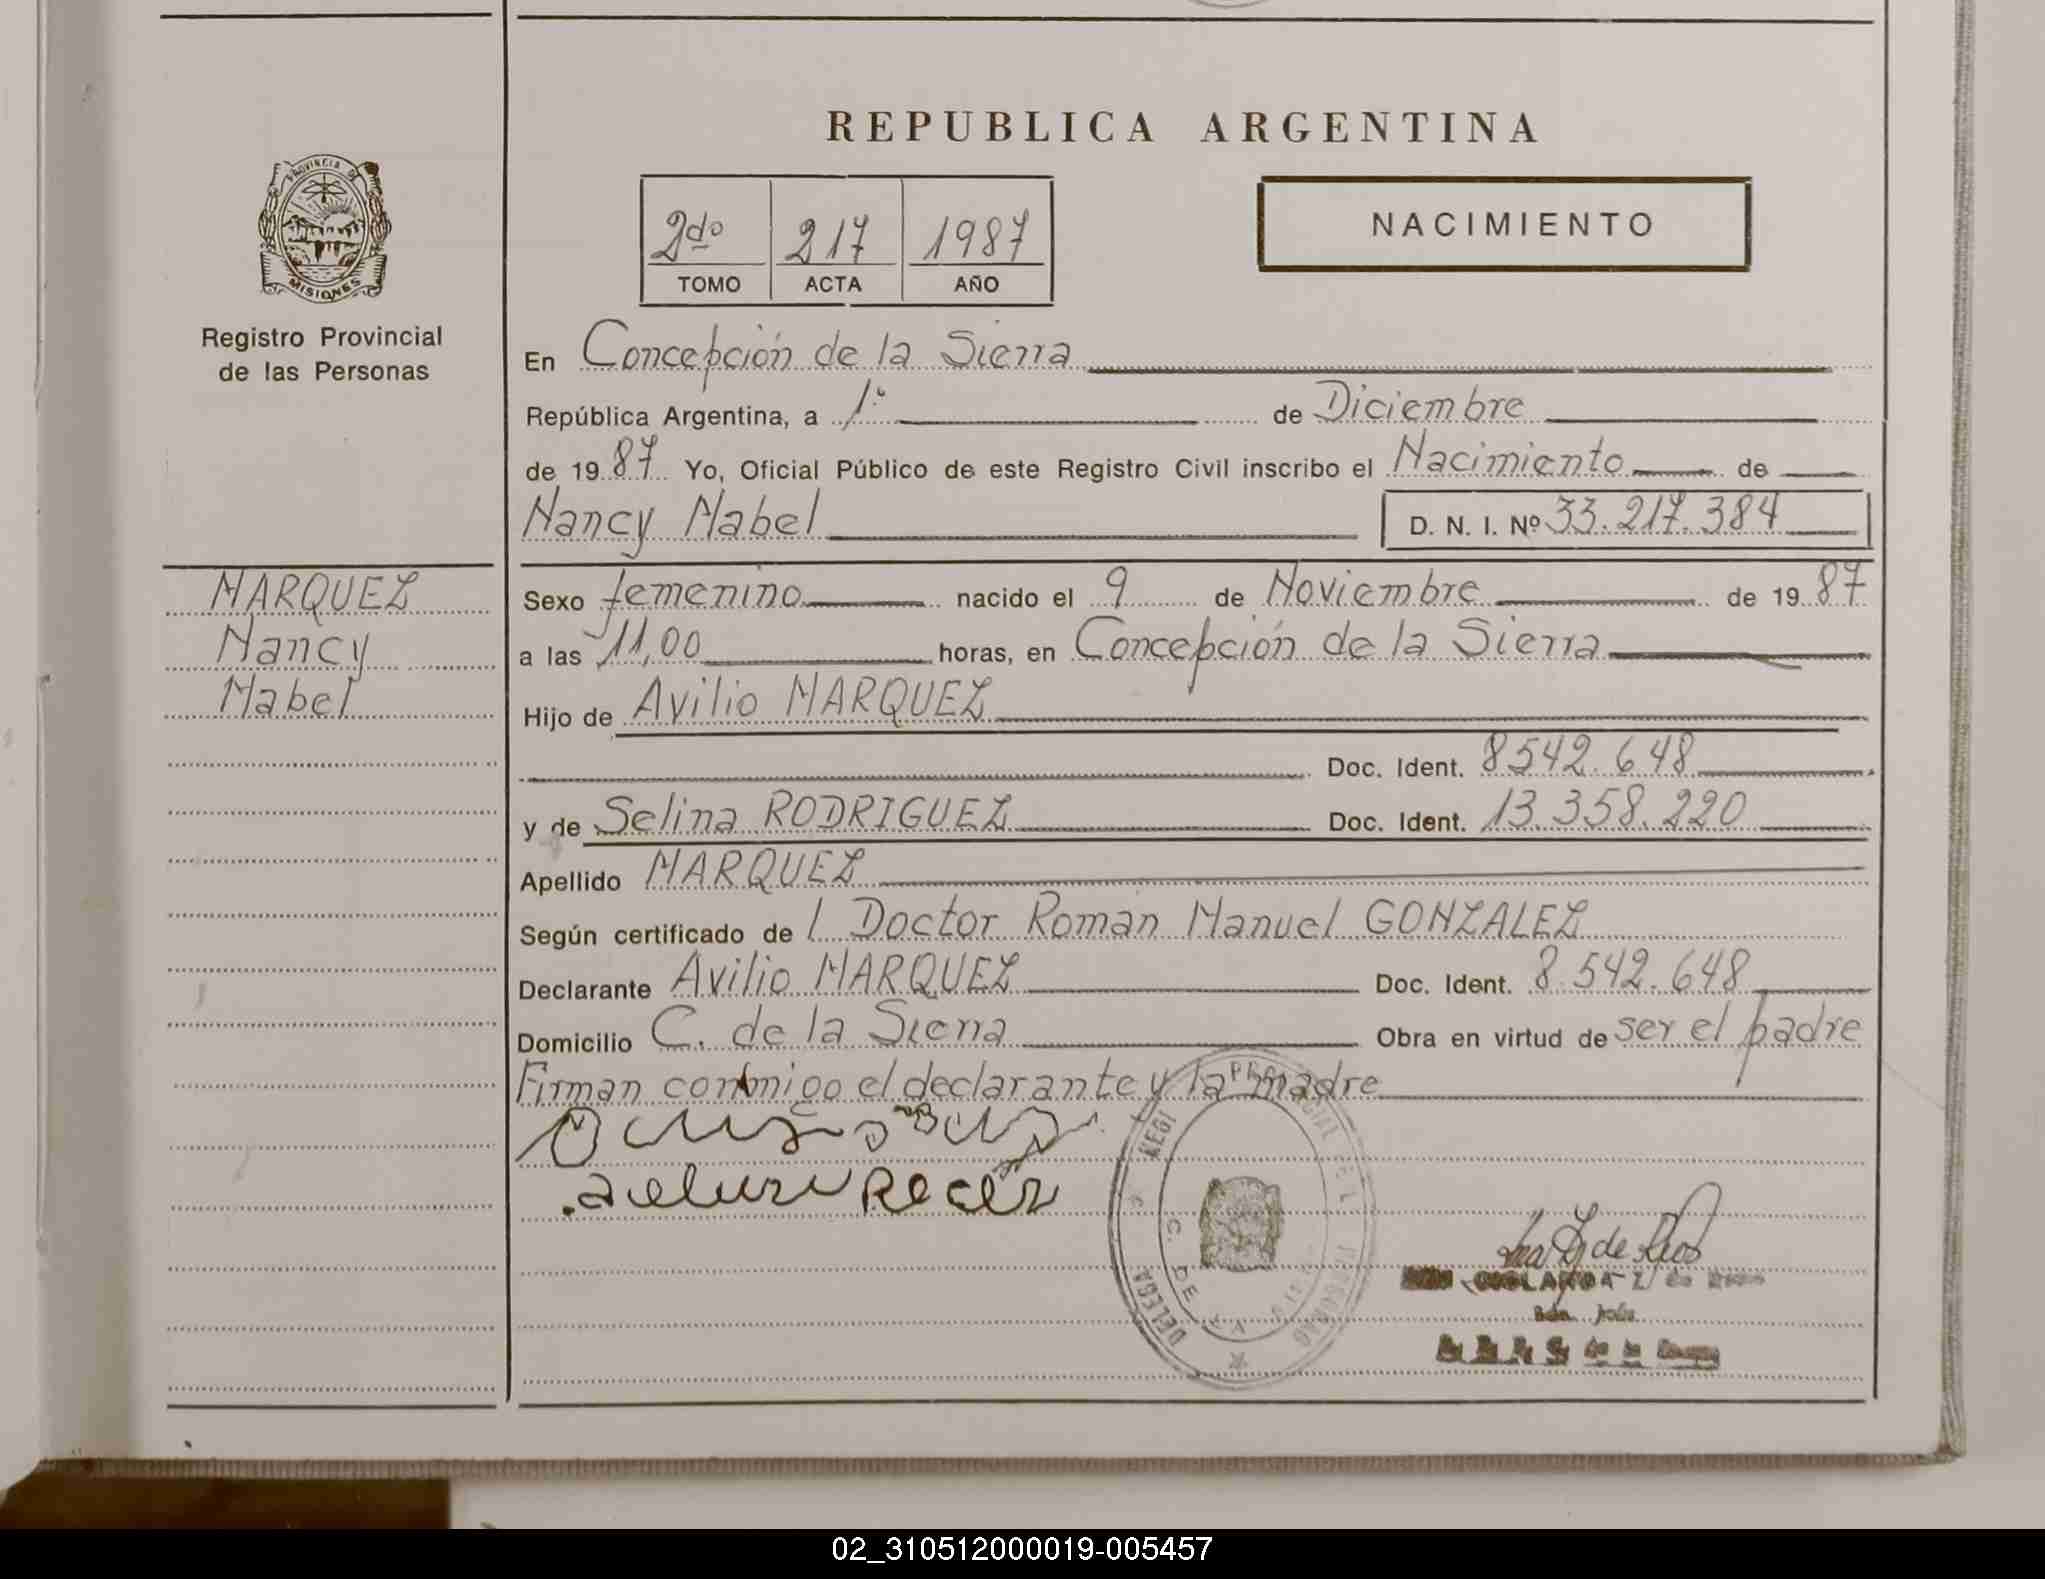 REPUBLICA ARGENTINA
PROVINCIA DE
MISIONES
Registro Provincial
de las Personas
2do 217 1987
TOMO ACTA AÑO
NACIMIENTO
En Concepción de la Sierra
República Argentina, a 1º de Diciembre
de 1987 Yo, Oficial Público de este Registro Civil inscribo el Nacimiento de
Nancy Mabel D. N. I. Nº 33.217.384
MARQUEZ
Nancy
Mabel
Sexo femenino nacido el 9 de Noviembre de 1987
a las 11,00 horas, en Concepción de la Sierra
Hijo de Avilio MARQUEZ
Doc. Ident. 8542.648
y de Selina RODRIGUEZ Doc. Ident. 13.358.220
Apellido MARQUEZ
Según certificado de l Doctor Roman Manuel GONZALEZ
Declarante Avilio MARQUEZ Doc. Ident. 8.542.648
Domicilio C. de la Sierra Obra en virtud de ser el padre
Firman conmigo el declarante y la madre
02_310512000019-005457